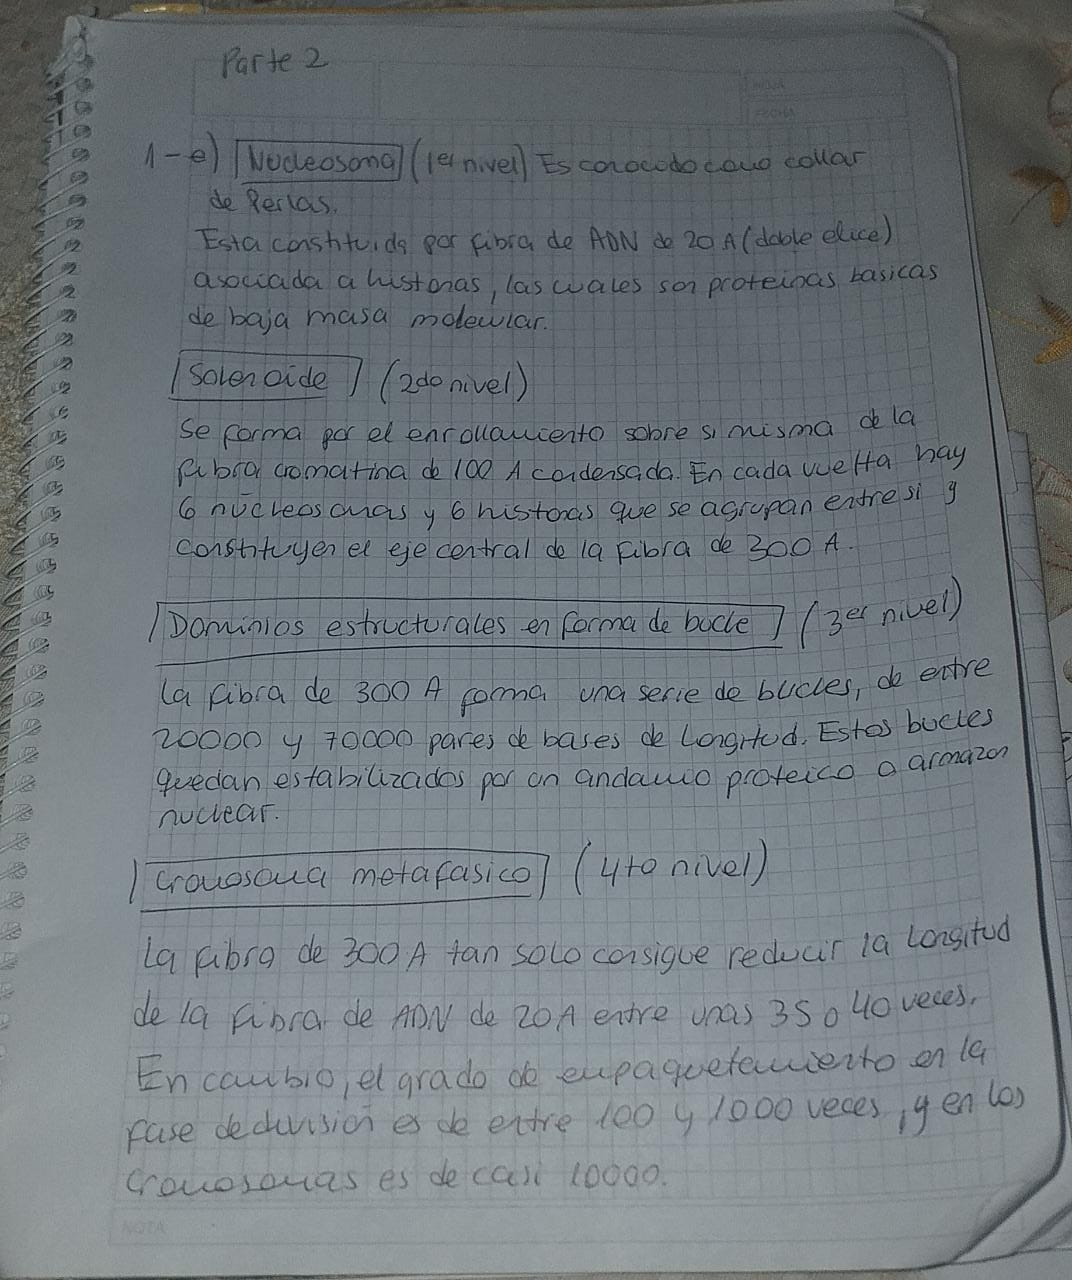 Parte 2
1-e) Nucleosoma (1er nivel) Es conocido como collar
de Perlas.
Esta constituida por fibra de ADN de 20 A (doble elice)
asociada a histonas, las cuales son proteinas basicas
de baja masa molecular.
Solenoide (2do nivel)
Se forma por el enrollamiento sobre si misma de la
fibra cromatina de 100 A condensada. En cada vuelta hay
6 nucleosomas y 6 histonas que se agrupan entre si y
constituyen el eje central de la fibra de 300 A.
Dominios estructurales en forma de bucle (3er nivel)
La fibra de 300 A forma una serie de bucles, de entre
20000 y 70000 pares de bases de longitud. Estos bucles
quedan estabilizados por un andamio proteico o armazon
nuclear.
Cromosoma metafasico (4to nivel)
La fibra de 300 A tan solo consigue reducir la longitud
de la fibra de ADN de 20 A entre unas 35 o 40 veces.
En cambio, el grado de empaquetamiento en la
fase de división es de entre 100 y 1000 veces, y en los
cromosomas es de casi 10000.
NOTA